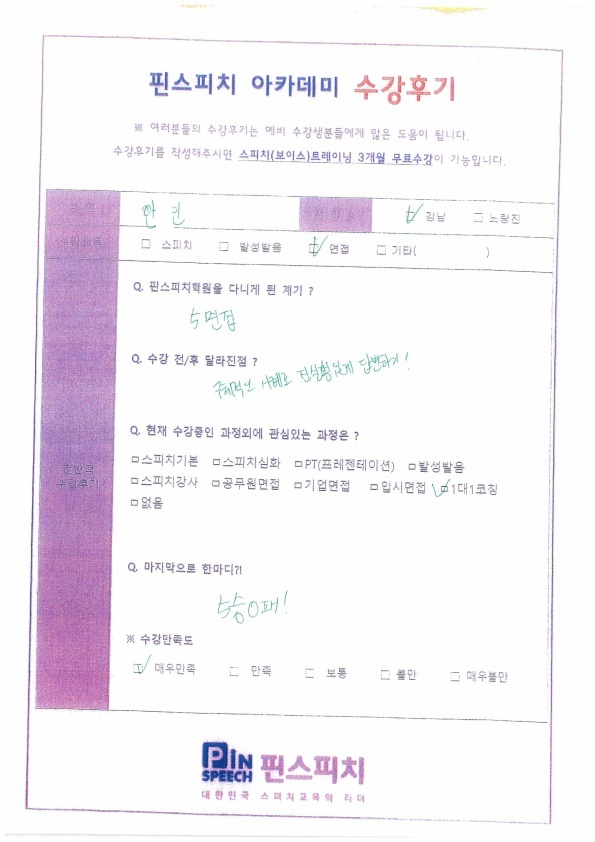 핀스피치 아카데미 수강후기
※ 여러분들의 수강후기는 예비 수강생분들에게 많은 도움이 됩니다.
수강후기를 작성해주시면 스피치(보이스)트레이닝 3개월 무료수강이 가능합니다.
안민 강남 노량진
스피치 발성발음 면접 기타( )
Q. 핀스피치학원을 다니게 된 계기 ?
5면접
Q. 수강 전/후 달라진점 ?
구체적인 사례로 진실함있게 답변하기!
Q. 현재 수강중인 과정외에 관심있는 과정은 ?
□스피치기본 □스피치심화 □PT(프레젠테이션) □발성발음
전반적
수강후기
□스피치강사 □공무원면접 □기업면접 □입시면접 □1대1코칭
□없음
Q. 마지막으로 한마디?!
5승0패!
※ 수강만족도
매우만족 □ 만족 □ 보통 □ 불만 □ 매우불만
PiN SPEECH 핀스피치
대한민국 스피치교육의 리더